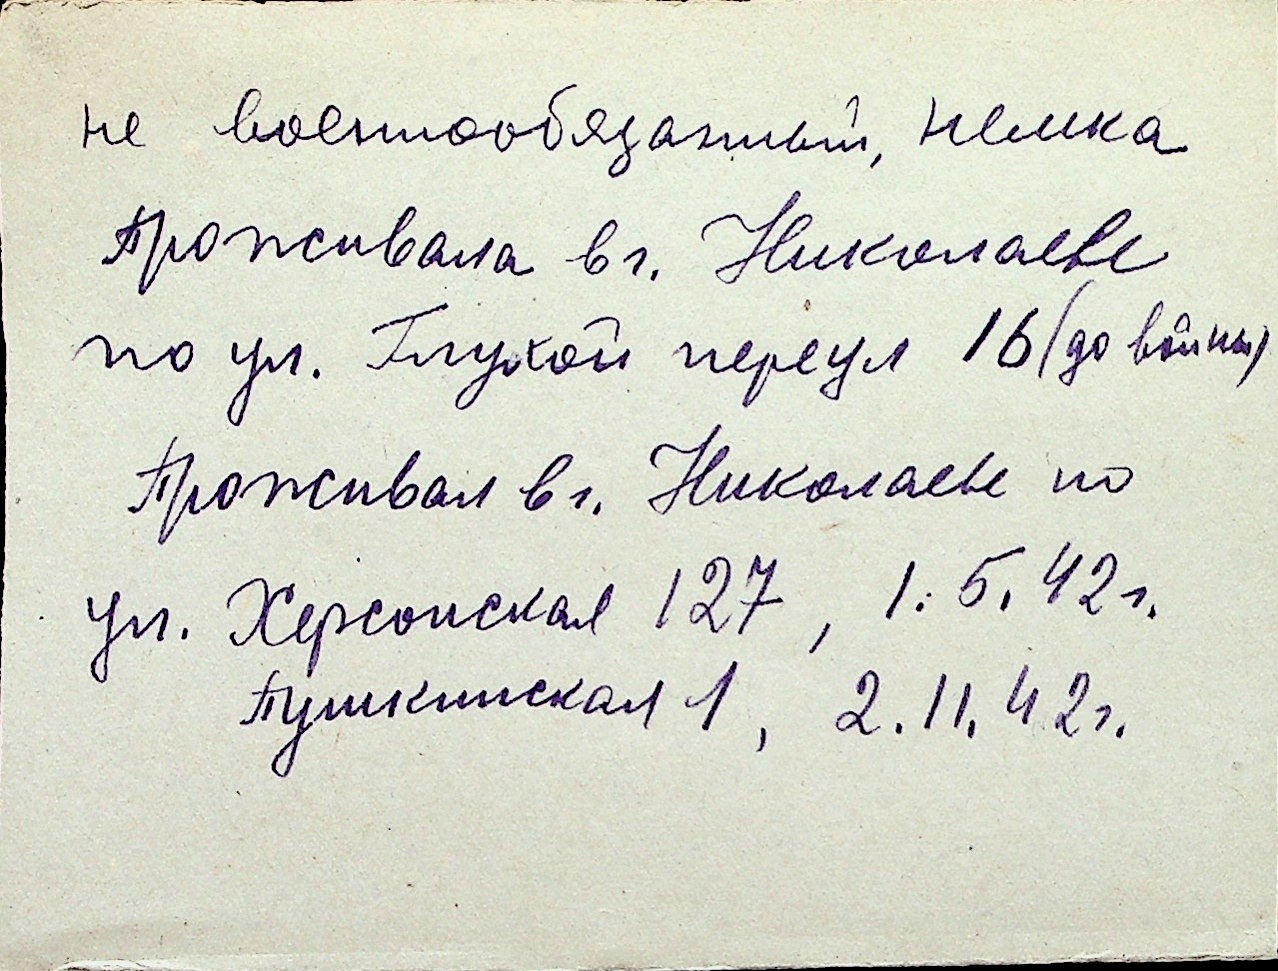 не военнообязанный, немка
Проживала в г. Николаеве
по ул. Глухой переул 16 (до войны)
Проживал в г. Николаеве по
ул. Херсонская 127, 1.5.42 г.
Пушкинская 1, 2.11.42 г.